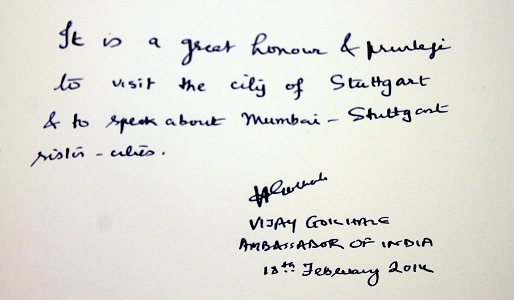 It is a great honour & privilege
to visit the city of Stuttgart
& to speak about Mumbai - Stuttgart
sister - cities.
VIJAY GOKHALE
AMBASSADOR OF INDIA
18th February 2014